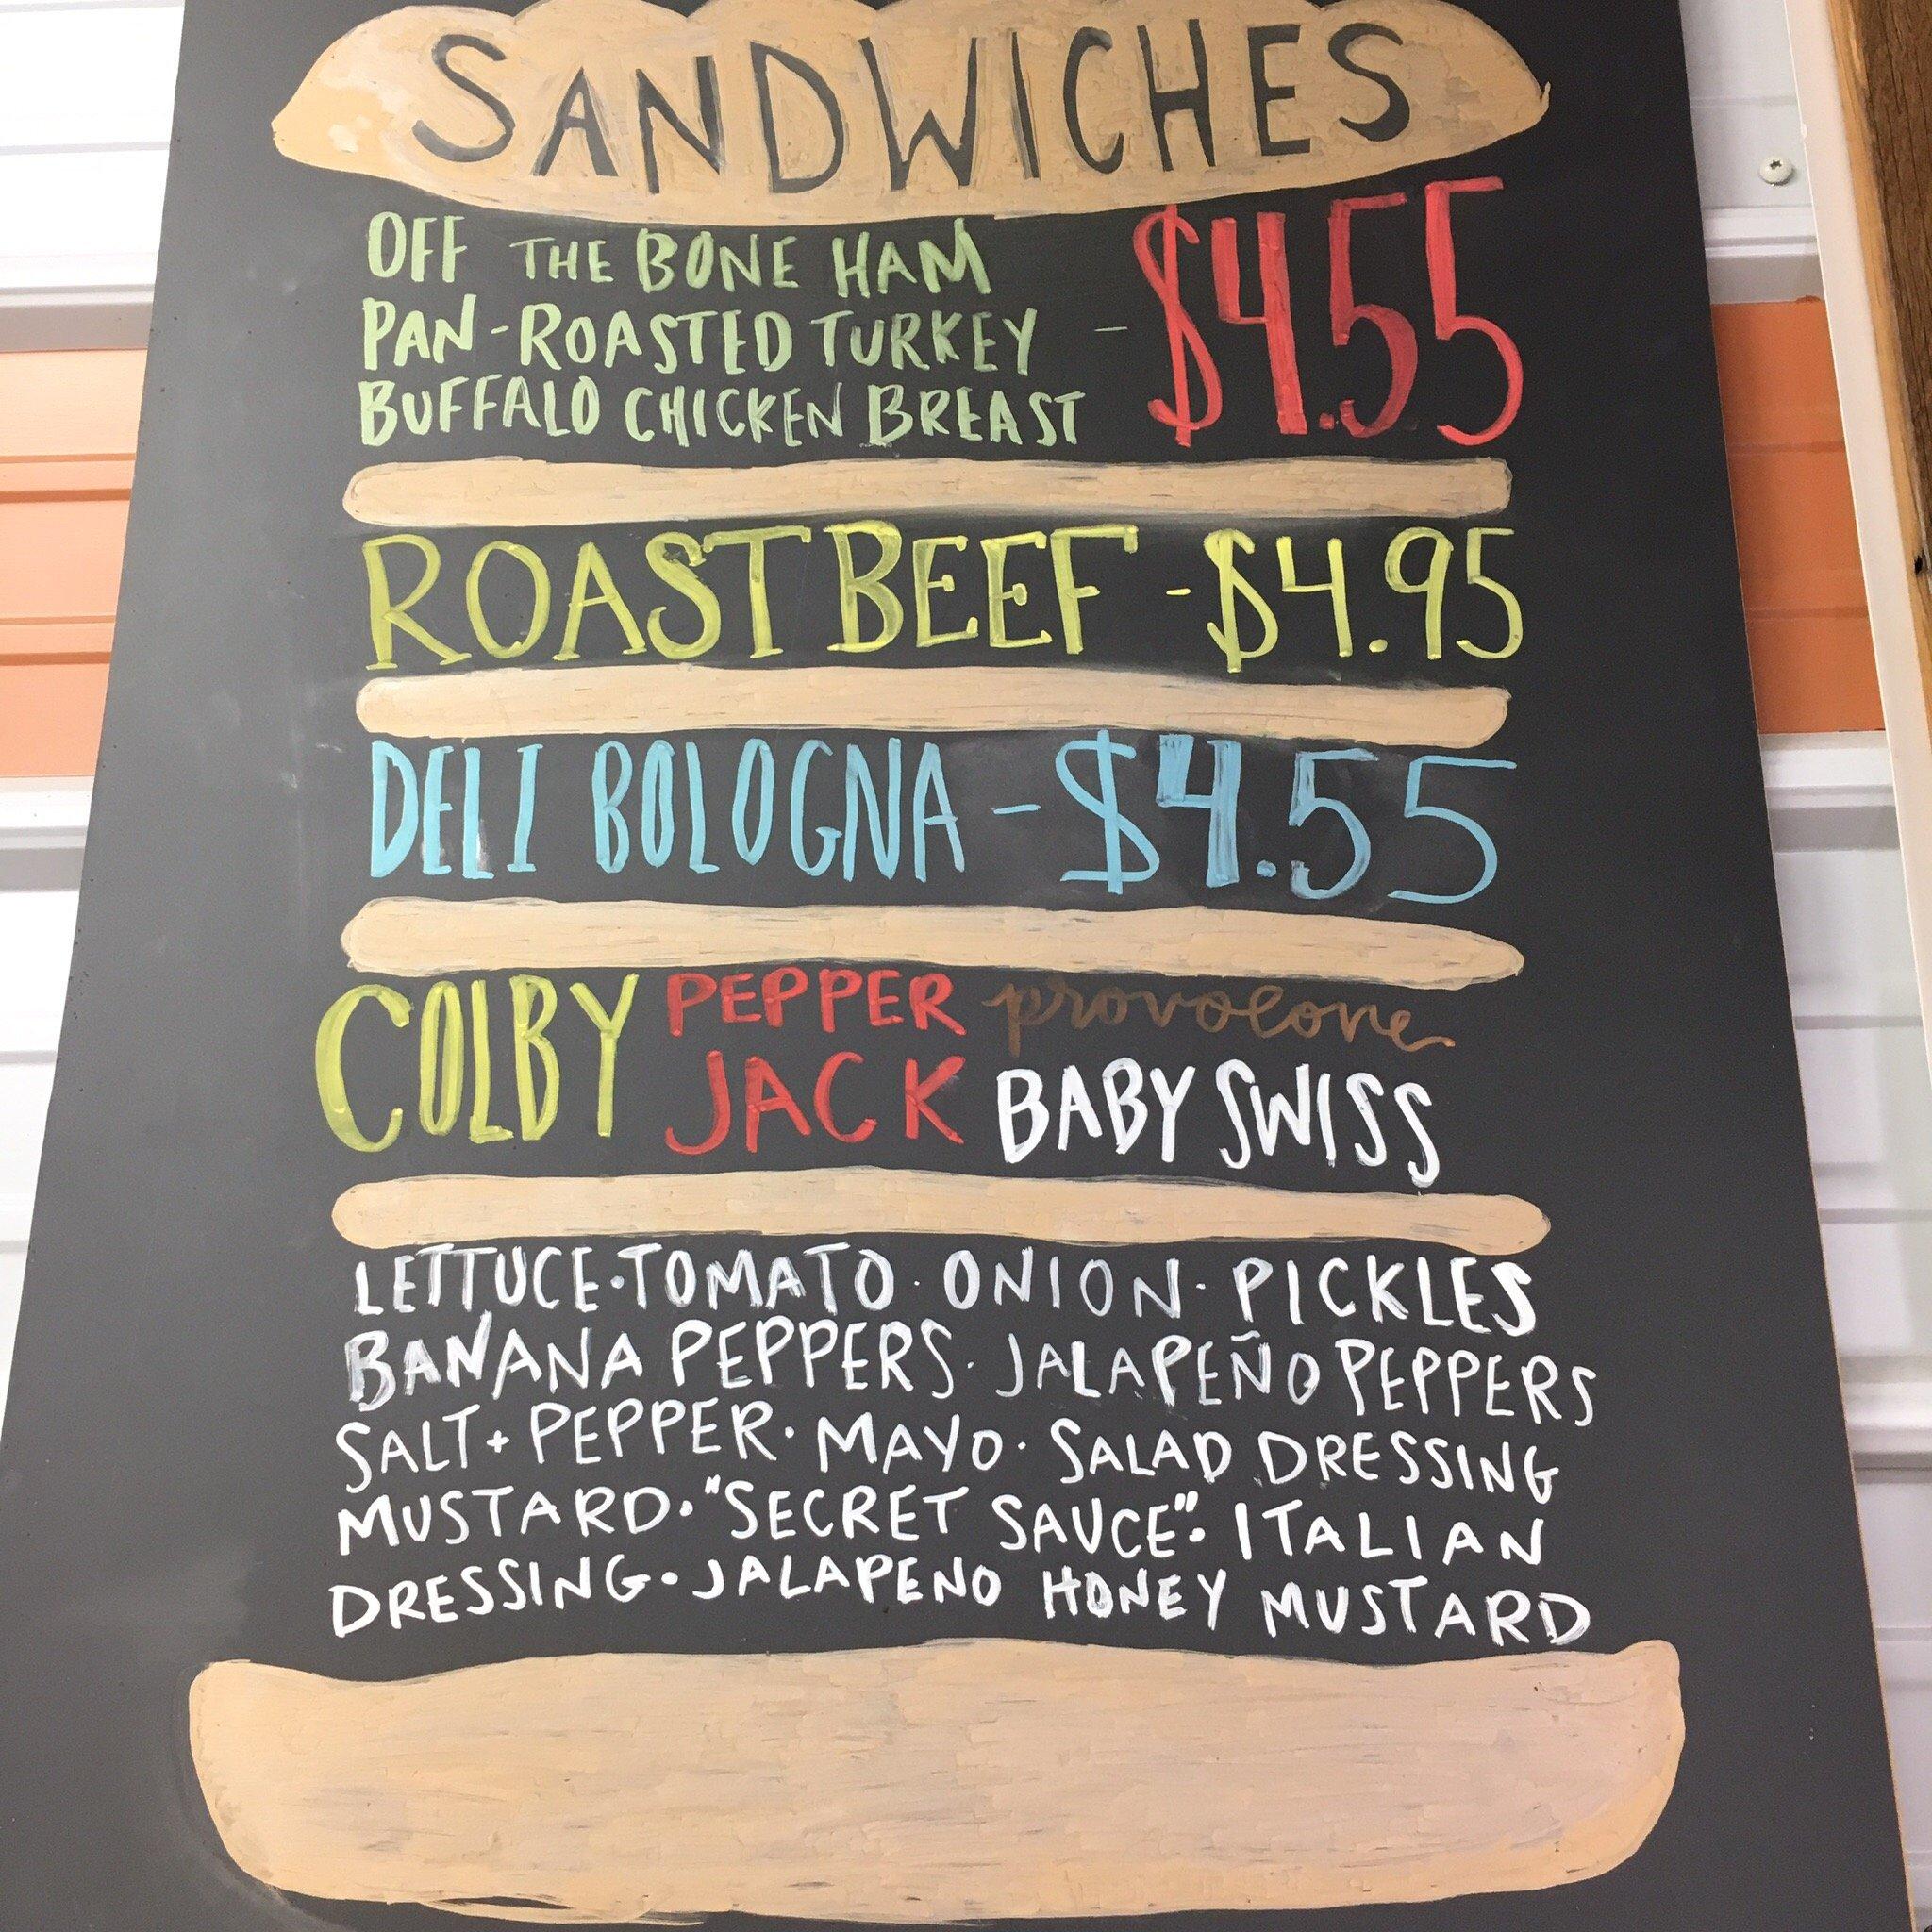 SANDWICHES
OFF THE BONE HAM
PAN-ROASTED TURKEY - $4.55
BUFFALO CHICKEN BREAST
ROAST BEEF - $4.95
DELI BOLOGNA - $4.55
COLBY PEPPER JACK provolone
BABY SWISS
LETTUCE · TOMATO · ONION · PICKLES
BANANA PEPPERS · JALAPEÑO PEPPERS
SALT + PEPPER · MAYO · SALAD DRESSING
MUSTARD · "SECRET SAUCE" · ITALIAN
DRESSING · JALAPENO HONEY MUSTARD